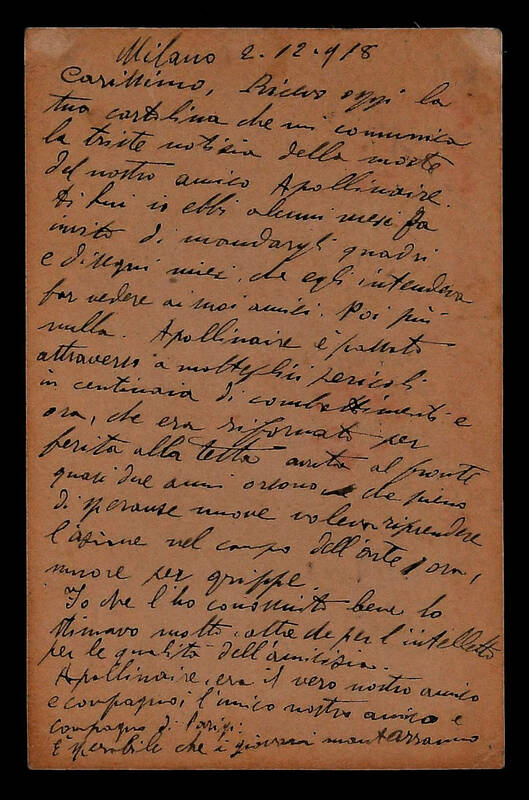 Milano 2-12-918
Carissimo, Ricevo oggi la
tua cartolina che mi comunica
la triste notizia della morte
del nostro amico Apollinaire.
Di lui io ebbi alcuni mesi fa
invito di mandargli quadri
e disegni miei, che egli intendeva
far vedere ai suoi amici. Poi più
nulla. Apollinaire è passato
attraverso a molteplici pericoli
in centinaia di combattimenti e
ora, che era riformato per
ferita alla testa avuta al fronte
quasi due anni orsono e che pieno
di speranze nuove voleva riprendere
l'azione nel campo dell'arte, ora,
muore per grippe.
Io che l'ho conosciuto bene lo
stimavo molto, oltre che per l'intelletto
per le qualità dell'amicizia.
Apollinaire, era il vero nostro amico
e compagno; l'unico nostro amico e
compagno di Parigi.
È sperabile che i giovani